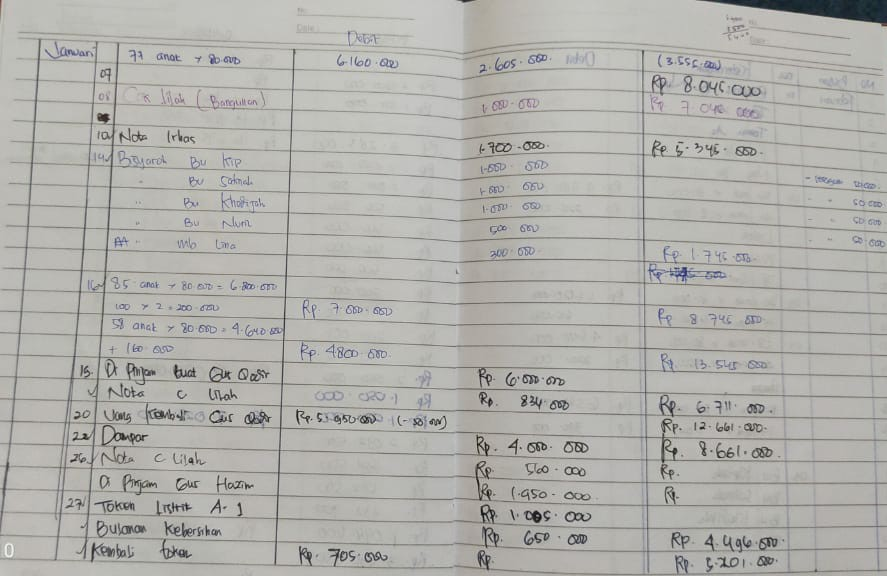 Debit
Januari 77 anak x 80.000 6.160.000 2.605.000 (3.555.000)
07 Rp 8.045.000
08 Cak Lilah (Bangunan) 1.000.000 Rp 7.045.000
10 Nota Irhas 1.700.000. Rp 5.345.000.
14 Bisyaroh Bu Kip 1.000.000 50.000
" Bu 1.000.000 - " 50.000
" Bu Khofijah 1.000.000 - " 50.000
" Bu Nurir 500.000 - " 50.000
" Mb Lina 300.000 Rp. 1.745.000.
16 85 anak x 80.000 = 6.800.000
100 x 2 = 200.000 Rp. 7.000.000 Rp 8.745.000
58 anak x 80.000 = 4.640.000
+ 160.000 Rp. 4800.000. Rp. 13.545.000
15. Di Pinjam buat Gus Qodir Rp. 6.000.000
Nota C Lilah Rp. 834.000 Rp. 6.711.000.
20 Uang Kembali Gus Qodir Rp. 5.950.000 (-50.000) Rp. 12.661.000.
22 Dampar Rp. 4.000.000 Rp. 8.661.000.
26 Nota C Lilah Rp. 560.000 Rp.
Di Pinjam Gus Hazim Rp. 1.950.000. Rp.
27 Token Listrik A-1 Rp. 1.005.000
Bulanan Kebersihan Rp. 650.000 Rp. 4.496.000.
Kembali token Rp. 705.000 Rp. Rp. 5.201.000.